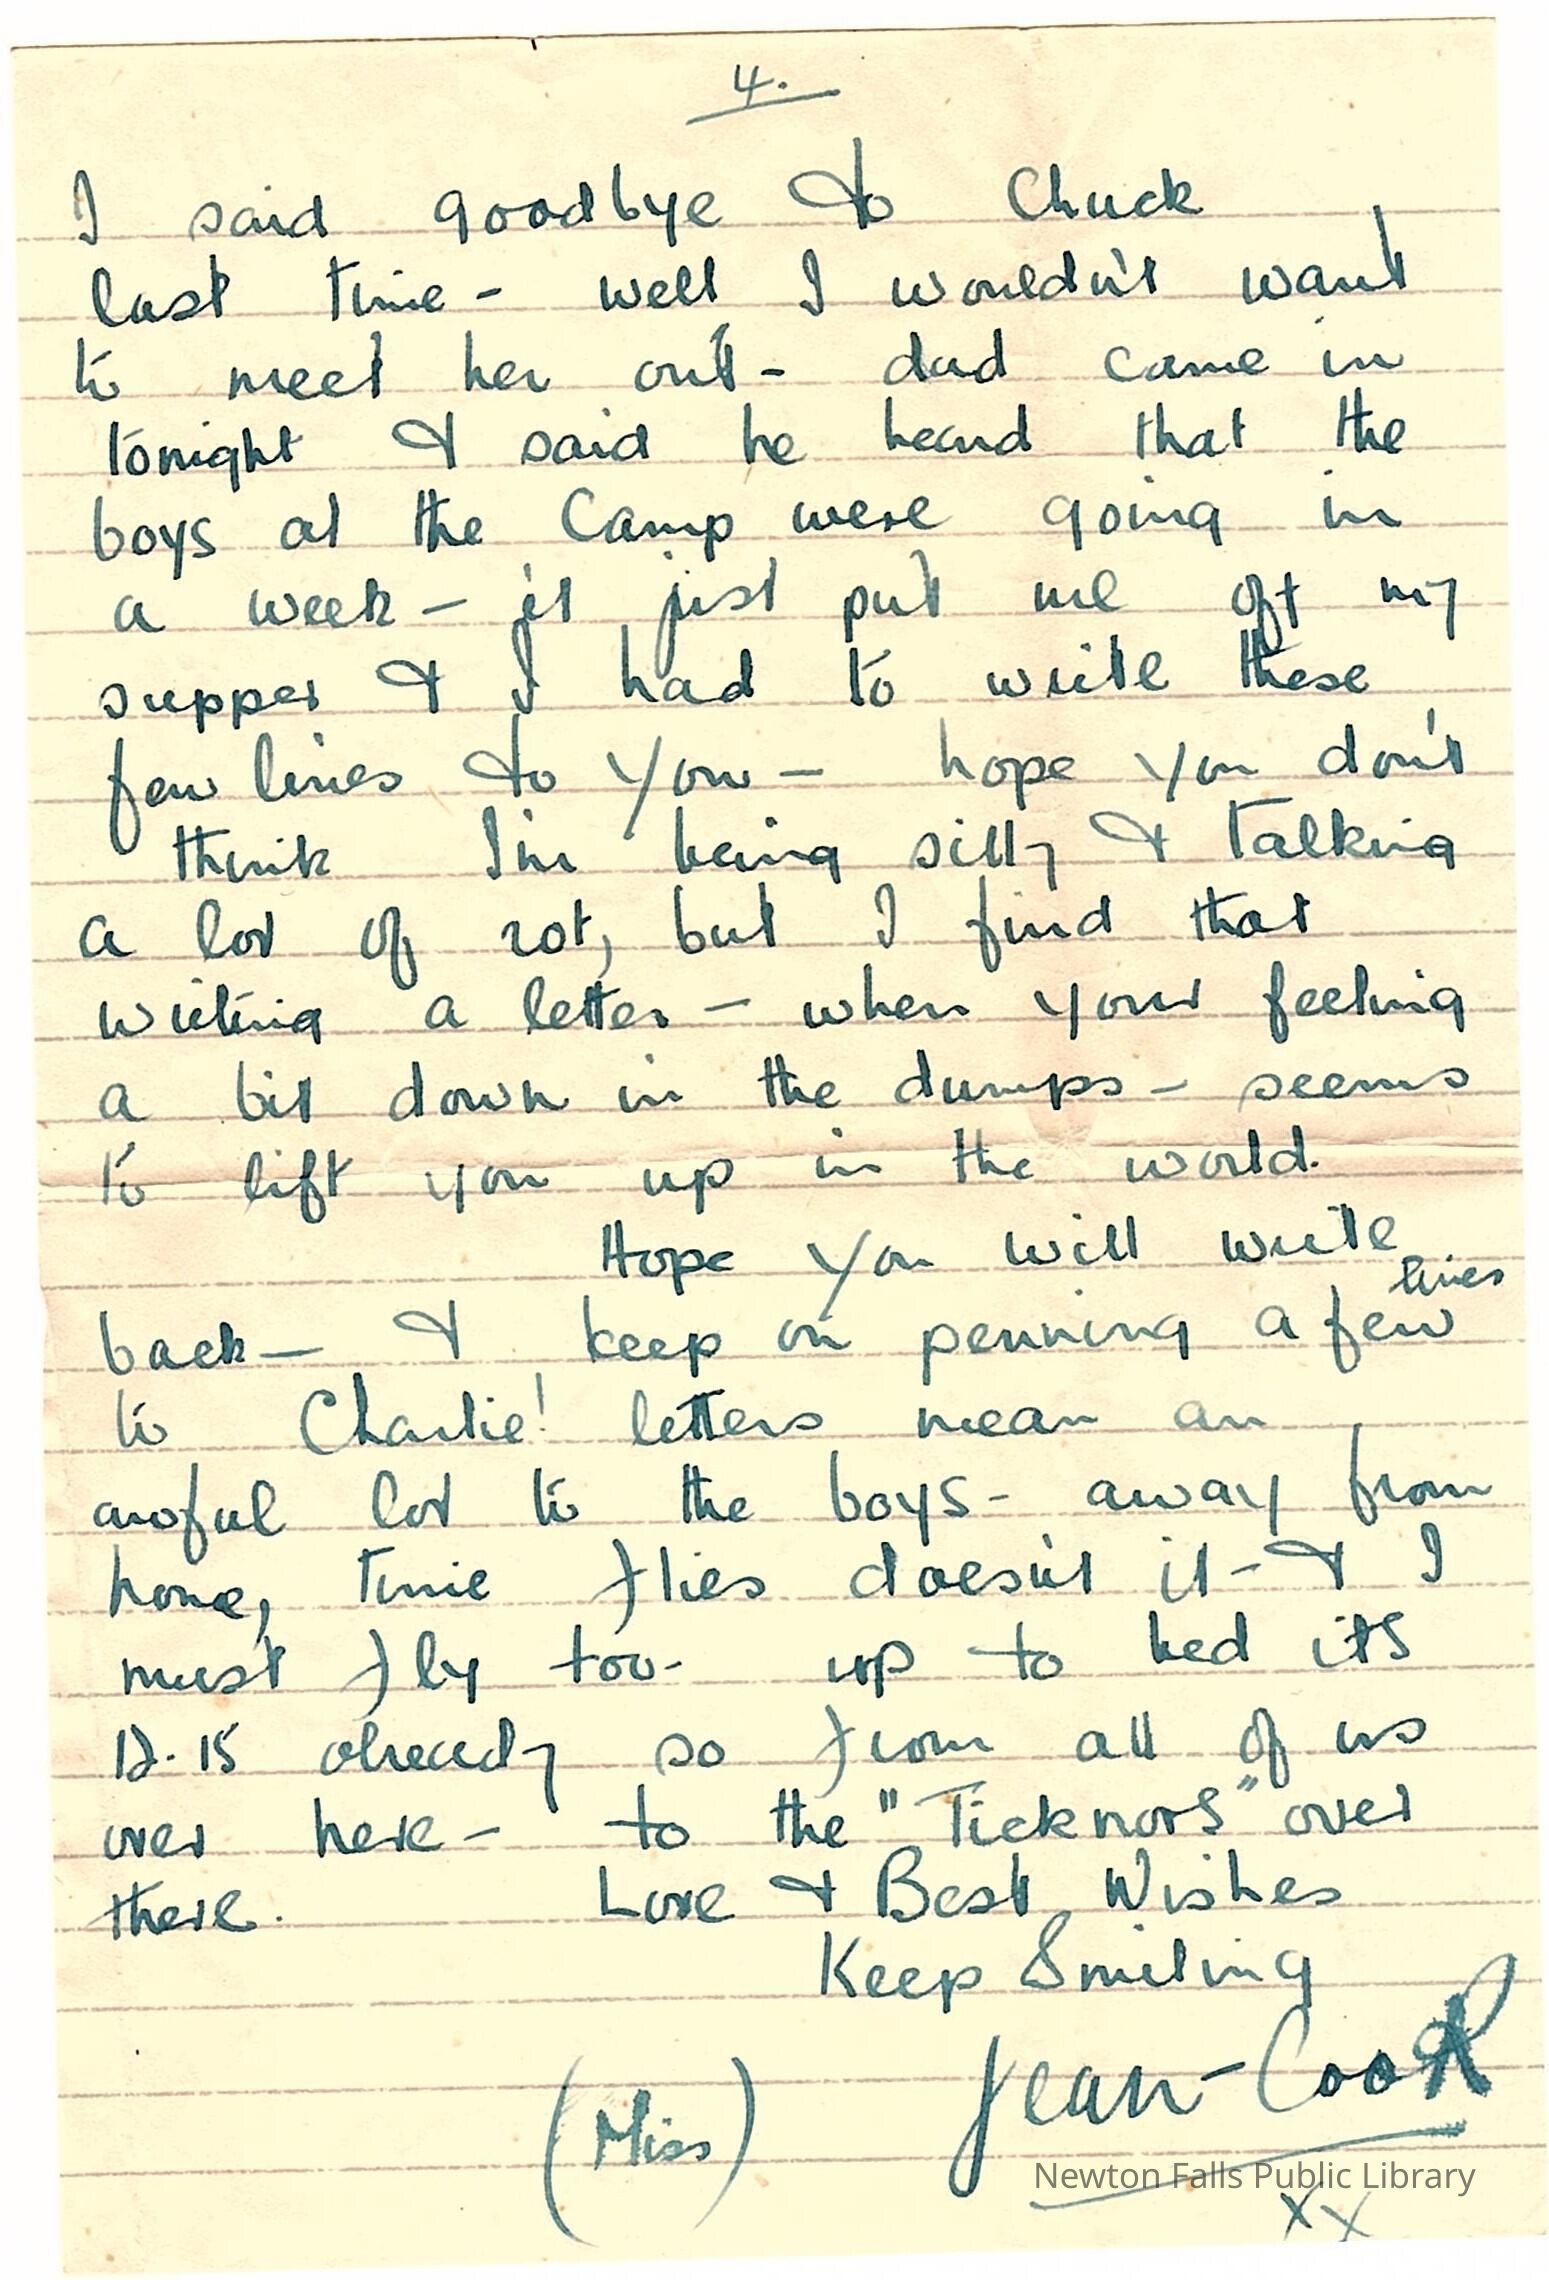 4.
I said goodbye to Chuck
last time - well I wouldn't want
to meet her out - dad came in
tonight & said he heard that the
boys at the Camp were going in
a week - it just put me off my
supper & I had to write these
few lines to you - hope you don't
think I'm being silly & talking
a lot of rot, but I find that
writing a letter - when your feeling
a bit down in the dumps - seems
to lift you up in the world.
Hope you will write
lines
back - & keep on penning a few
to Charlie! letters mean an
awful lot to the boys - away from
home, time flies doesn't it - & I
must fly too - up to bed its
12.15 already so from all of us
over here - to the "Ticknors" over
there. Love & Best Wishes
Keep Smiling
Jean - Cook
(Miss)
Newton Falls Public Library
xx